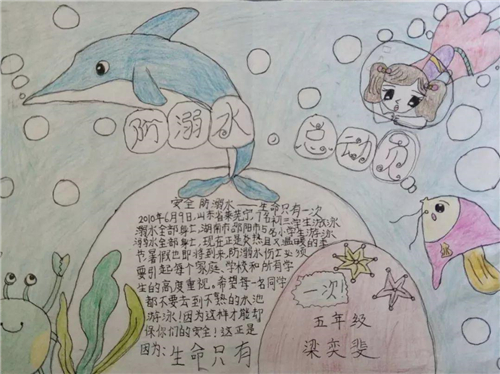 防溺水
总动员
安全防溺水——生命只有一次
2010年6月9日,山东省莱芜市7名初三学生游泳
溺水全部身亡,湖南市邵阳市5名小学生游泳
溺水全部身亡,现在正是炎热且又温暖的季
节,暑假也即将到来,防溺水伤亡必须
要引起每个家庭、学校和所有学
生的高度重视。希望每一名同学
都不要去到不熟的水池
游泳!因为这样才能却
保你们的安全!这正是
因为:生命只有
一次!
五年级
梁奕斐